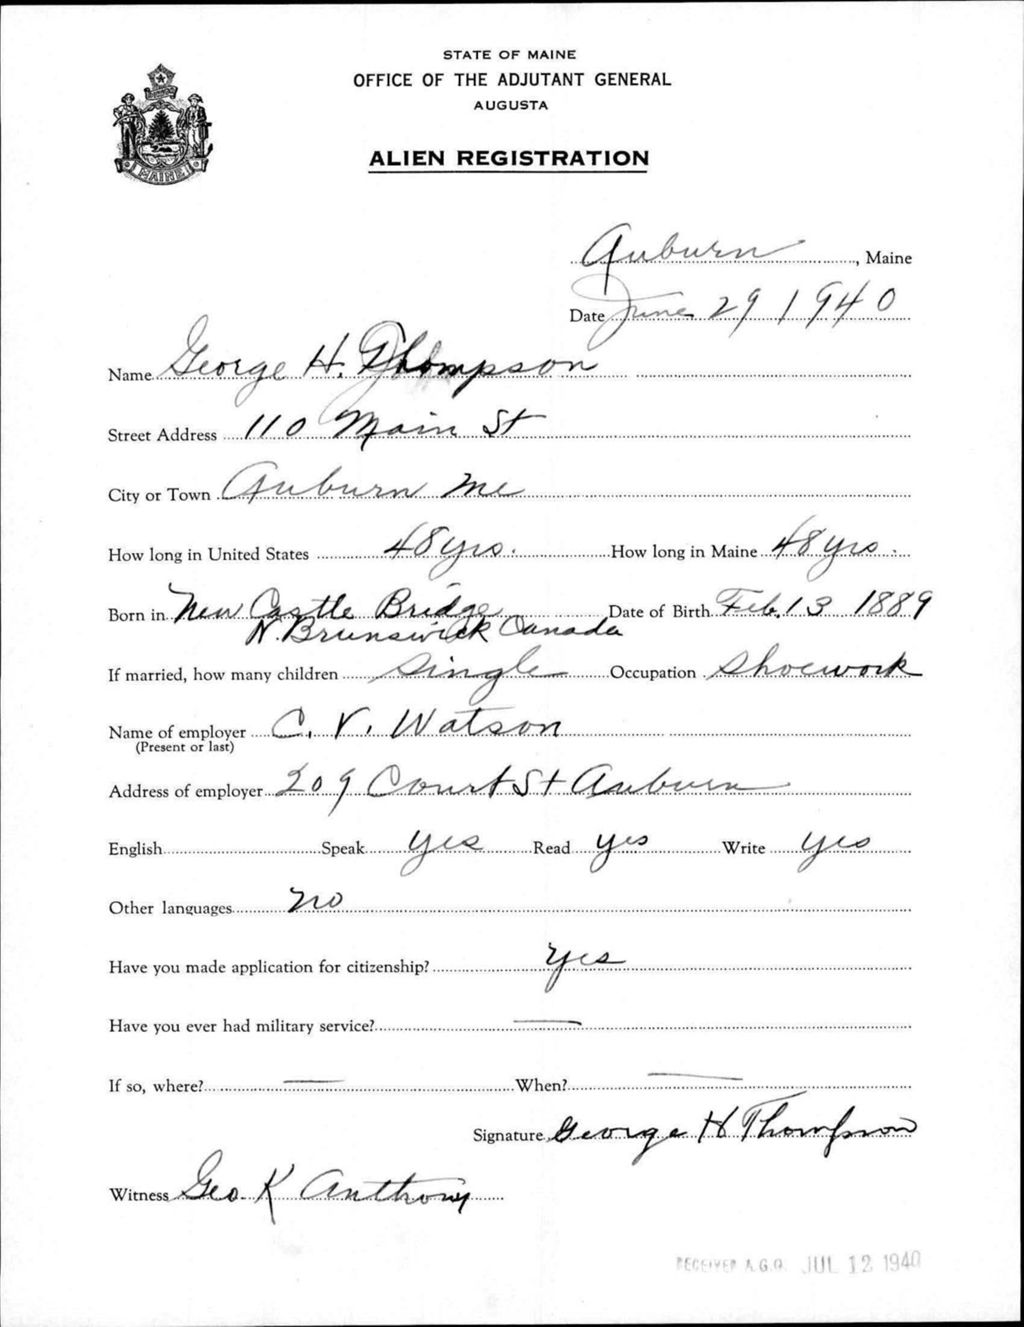 STATE OF MAINE
OFFICE OF THE ADJUTANT GENERAL
AUGUSTA
ALIEN REGISTRATION
MAINE
Auburn, Maine
Date June 29 1940
Name George H. Thompson
Street Address 110 Main St
City or Town Auburn Me
How long in United States 48 yrs. How long in Maine 48 yrs.
Born in New Castle Bridge Date of Birth Feb. 13 1889
N. Brunswick Canada
If married, how many children Single Occupation Shoework
Name of employer C. V. Watson
(Present or last)
Address of employer 209 Court St Auburn
English Speak yes Read yes Write yes
Other languages No
Have you made application for citizenship? Yes
Have you ever had military service? —
If so, where? — When? —
Signature George H Thompson
Witness Geo. K Anthony
RECEIVED A.G.O. JUL 12 1940